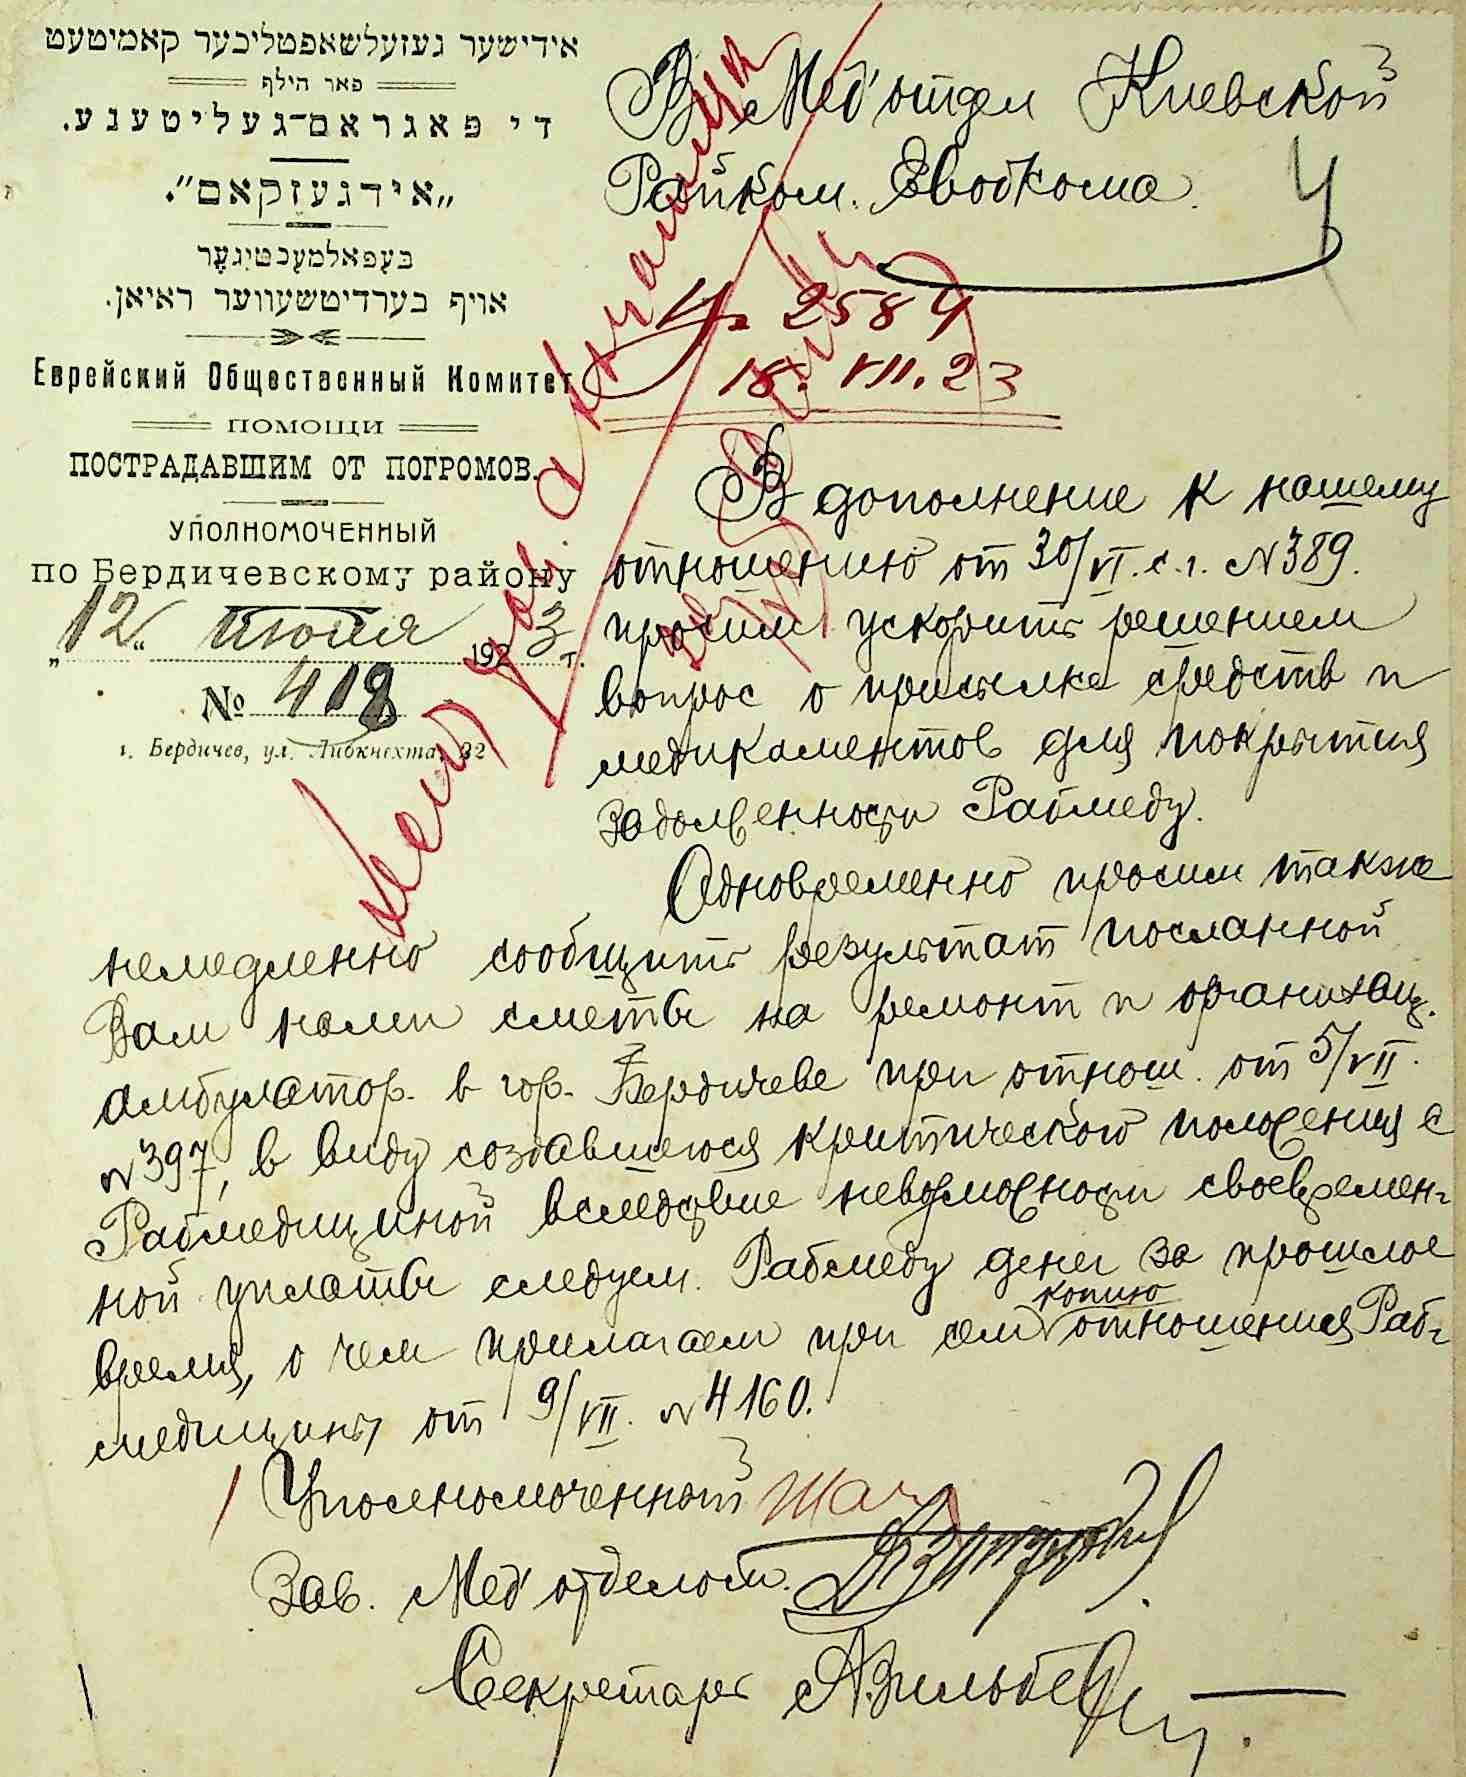 אידישער געזעלשאפטליכער קאמיטעט
פאר הילף
די פאגראם־געליטענע.
„אידגעזקאם”.
בעפאלמעכטיגער
אויף בערדיטשעווער ראיאן.
Еврейский Общественный Комитет
ПОМОЩИ
ПОСТРАДАВШИМ ОТ ПОГРОМОВ.
УПОЛНОМОЧЕННЫЙ
по Бердичевскому району
„12“ июля 1923 г.
№ 418
г. Бердичев, ул. Либкнехта, 32
В Мед'отдел Киевской
Райком. Евобкома.
4
2584
18. VII. 23
В дополнение к нашему
отношению от 30/VI. с.г. N389.
просим ускорить решением
вопрос о присылке средств и
медикаментов для покрытия
задолженности Рабмеду.
Одновременно просим также
немедленно сообщить результат посланной
Вам нами сметы на ремонт и организац.
амбулатор. в гор. Бердичеве при отнош. от 5/VII.
N397, в виду создавшегося критического положения с
Рабмедициной вследствие невозможности своевремен-
ной уплаты следуем. Рабмеду денег за прошлое
время, о чем прилагаем при сем копию отношения Раб-
медицины от 9/VII. N4160.
Уполномоченный
Зав. Мед'отделом.
Секретарь А.Зильбе